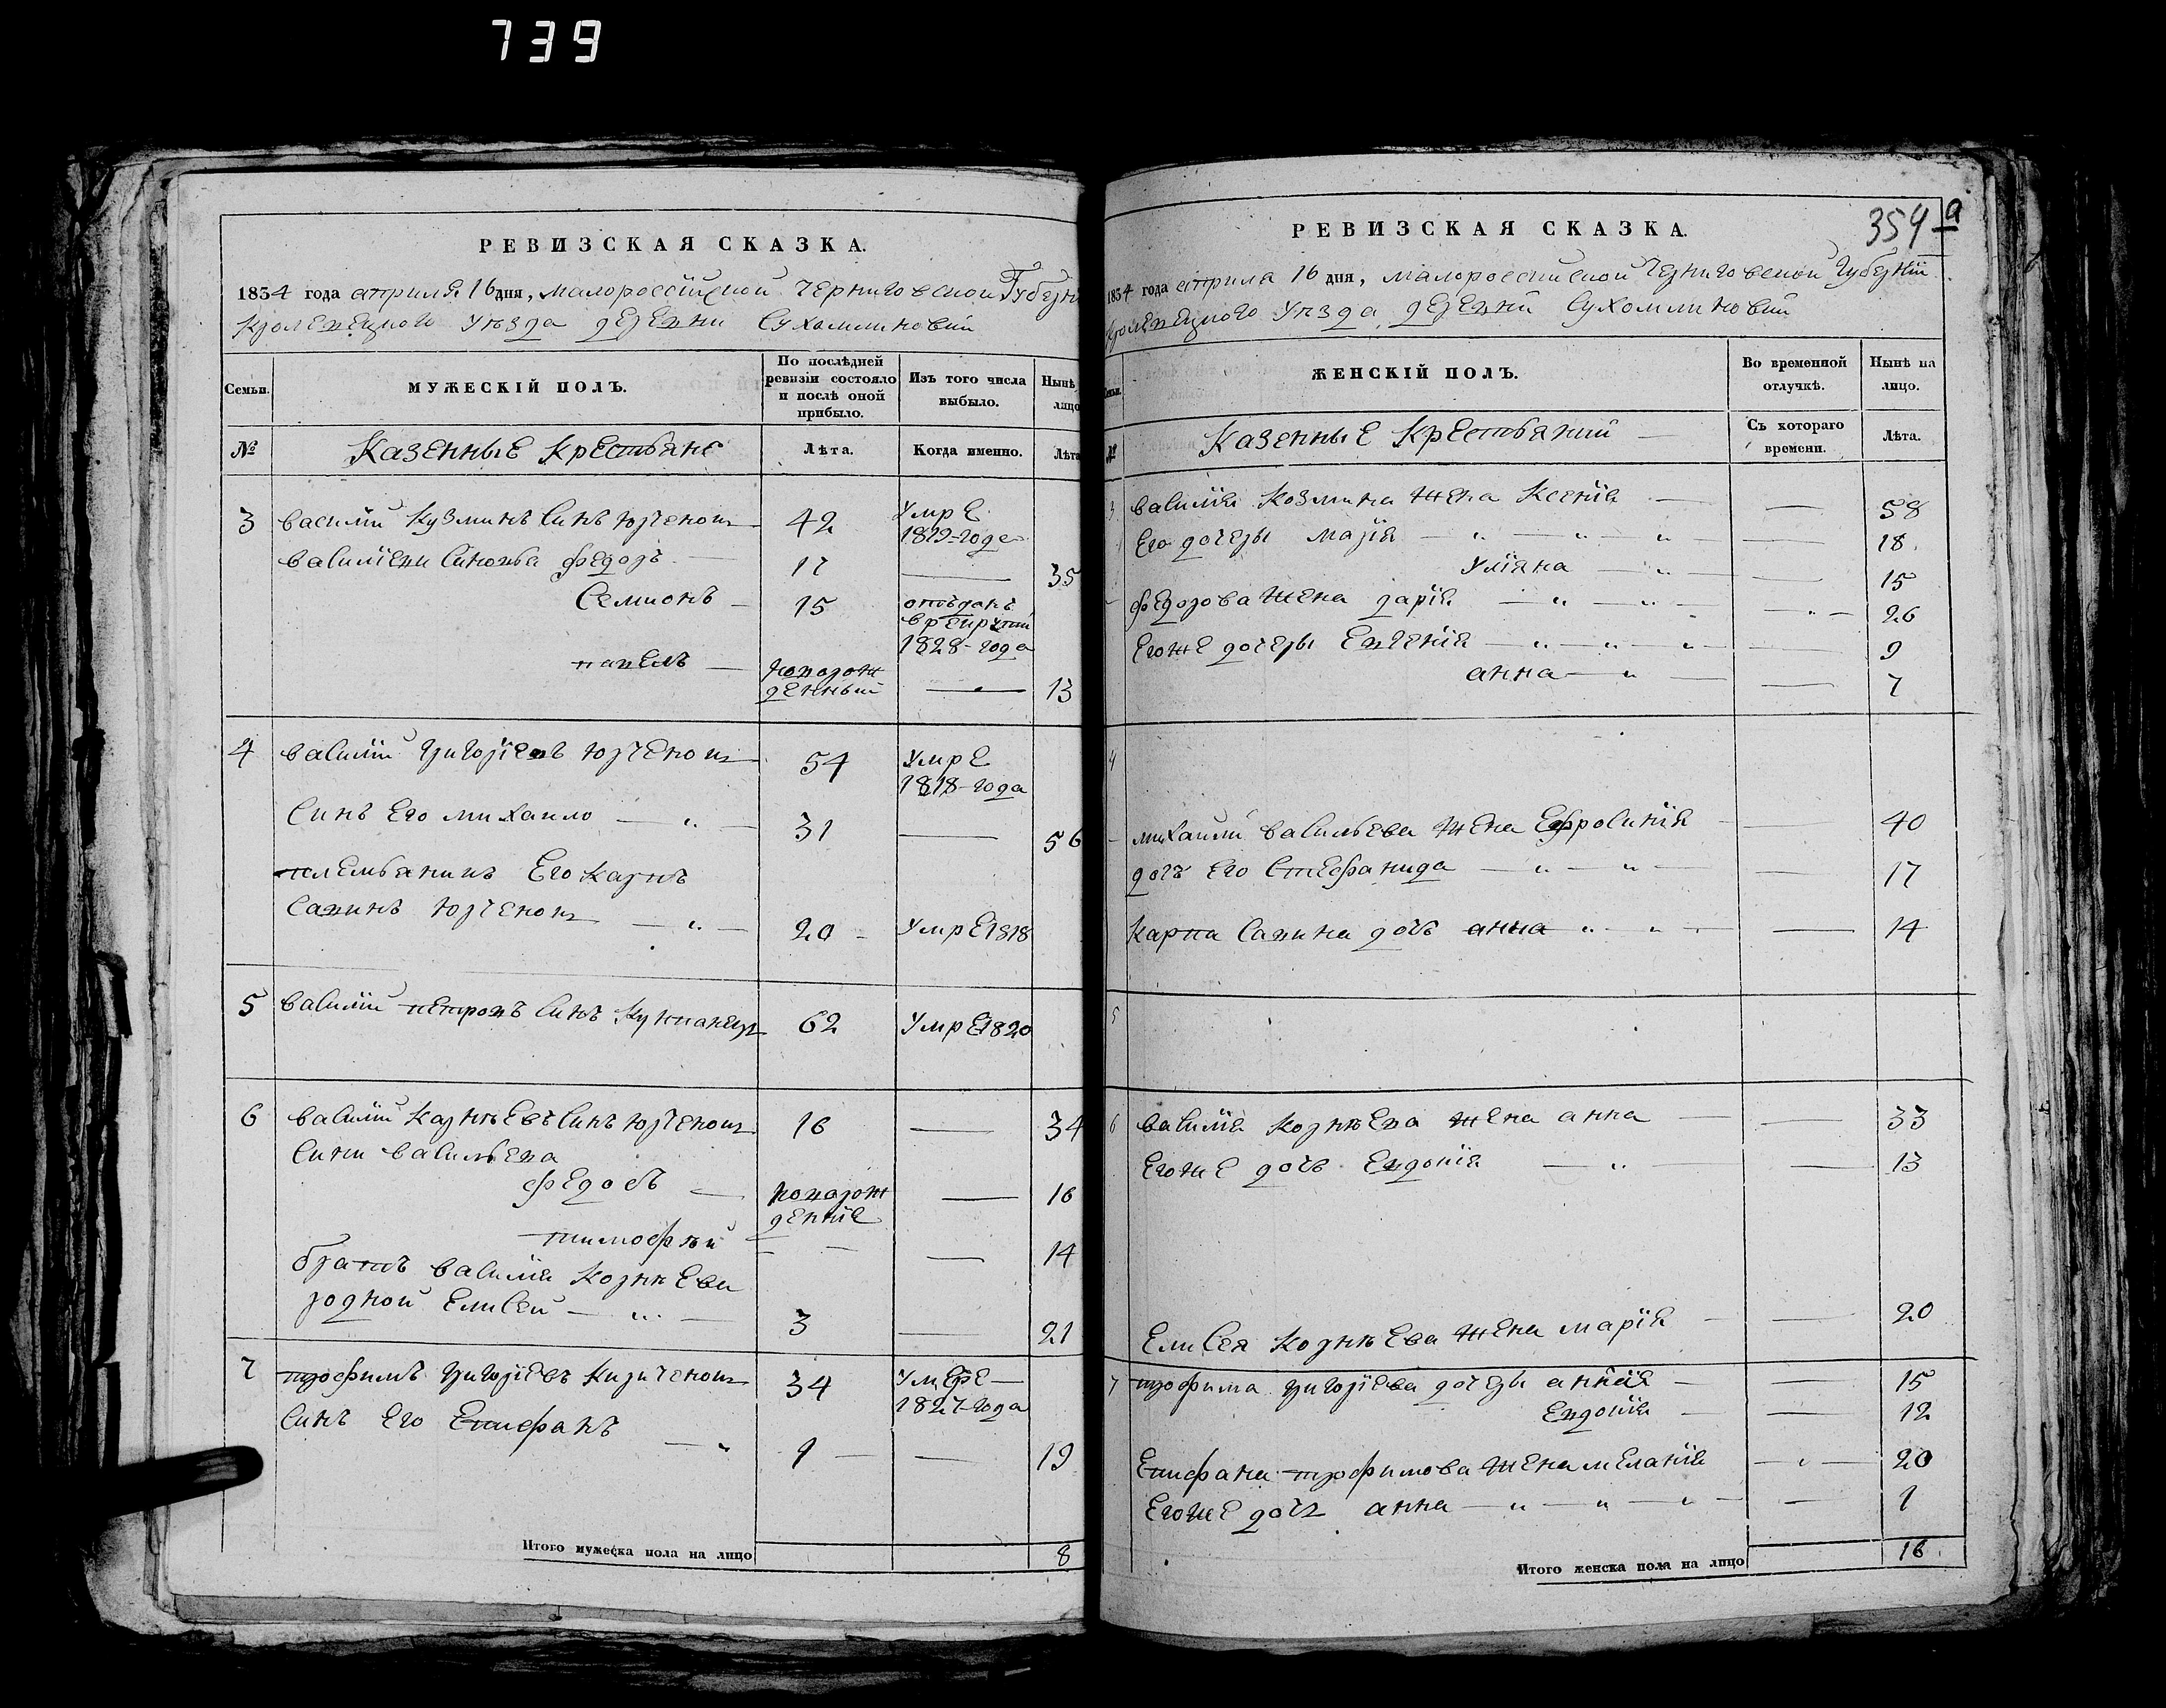 739
РЕВИЗСКАЯ СКАЗКА.
1834 года априля 16 дня, малороссійской Черниговской Губерніи
Кролевецкого Уезда деревни Сухомлиновки
Семьи.
МУЖЕСКІЙ ПОЛЪ.
По послѣдней ревизіи состояло и послѣ оной прибыло.
Изъ того числа выбыло.
Нынѣ лицо
№
Казенные Крестьяне
Лѣта.
Когда именно.
Лѣта
3 василій Кузминъ Синъ Юрченокъ 42 Умре 1819-года
василіеви Синовья федоръ 17 — 35
Семионъ 15 отъданъ в рекруты 1828-года
павелъ новорожденный — 13
4 василій григоріевъ Юрченокъ 54 Умре 1818-года
Синъ Его михаило 31 — 56
племьяникъ Его Карпъ
Савинъ Юрченокъ 20 Умре 1818
5 василій петровъ Синъ 62 Умре 1820
6 василій Корнѣевъ Синъ Юрченокъ 16 — 34
Сини васильева
федоръ новорожденніе — 16
тимофѣй — 14
братъ василія Корнѣева
родной Елисей 3 — 21
7 трофимъ григоріевъ Кириченокъ 34 Умере 1827-года
Синъ Его Епифанъ 1 — 19
Итого мужеска пола на лицо 8
354 а
РЕВИЗСКАЯ СКАЗКА.
1834 года априла 16 дня, малороссійской Черниговской Губерніи
Кролевецкого Уезда деревни Сухомлиновки
Семьи.
ЖЕНСКІЙ ПОЛЪ.
Во временной отлучкѣ.
Нынѣ на лицо.
№
Казенные Крестьяний
Съ котораго времени.
Лѣта.
3 василія Козмина жена Ксенія — 58
Его дочеры марія — 18
Уліяна — 15
федорова жена дарія — 26
Егоже дочеры Евгенія — 9
анна — 7
4
михаили васильева жена Ефросинія — 40
дочъ Его Стефанида — 17
Карпа Савина дочъ анна — 14
5
6 василія Корнѣева жена анна — 33
Егоже дочъ Евдокія — 13
Елисея Корнѣева жена марія — 20
7 трофима григоріева дочеры анная — 15
Евдокія — 12
Епифана трофимова жена меланія — 20
Егоже дочъ анна — 1
Итого женска пола на лицо 16